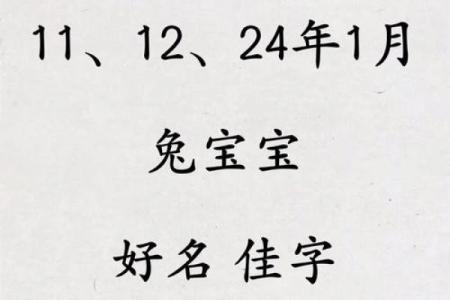 11、12、24年1月
兔宝宝
好名 佳字